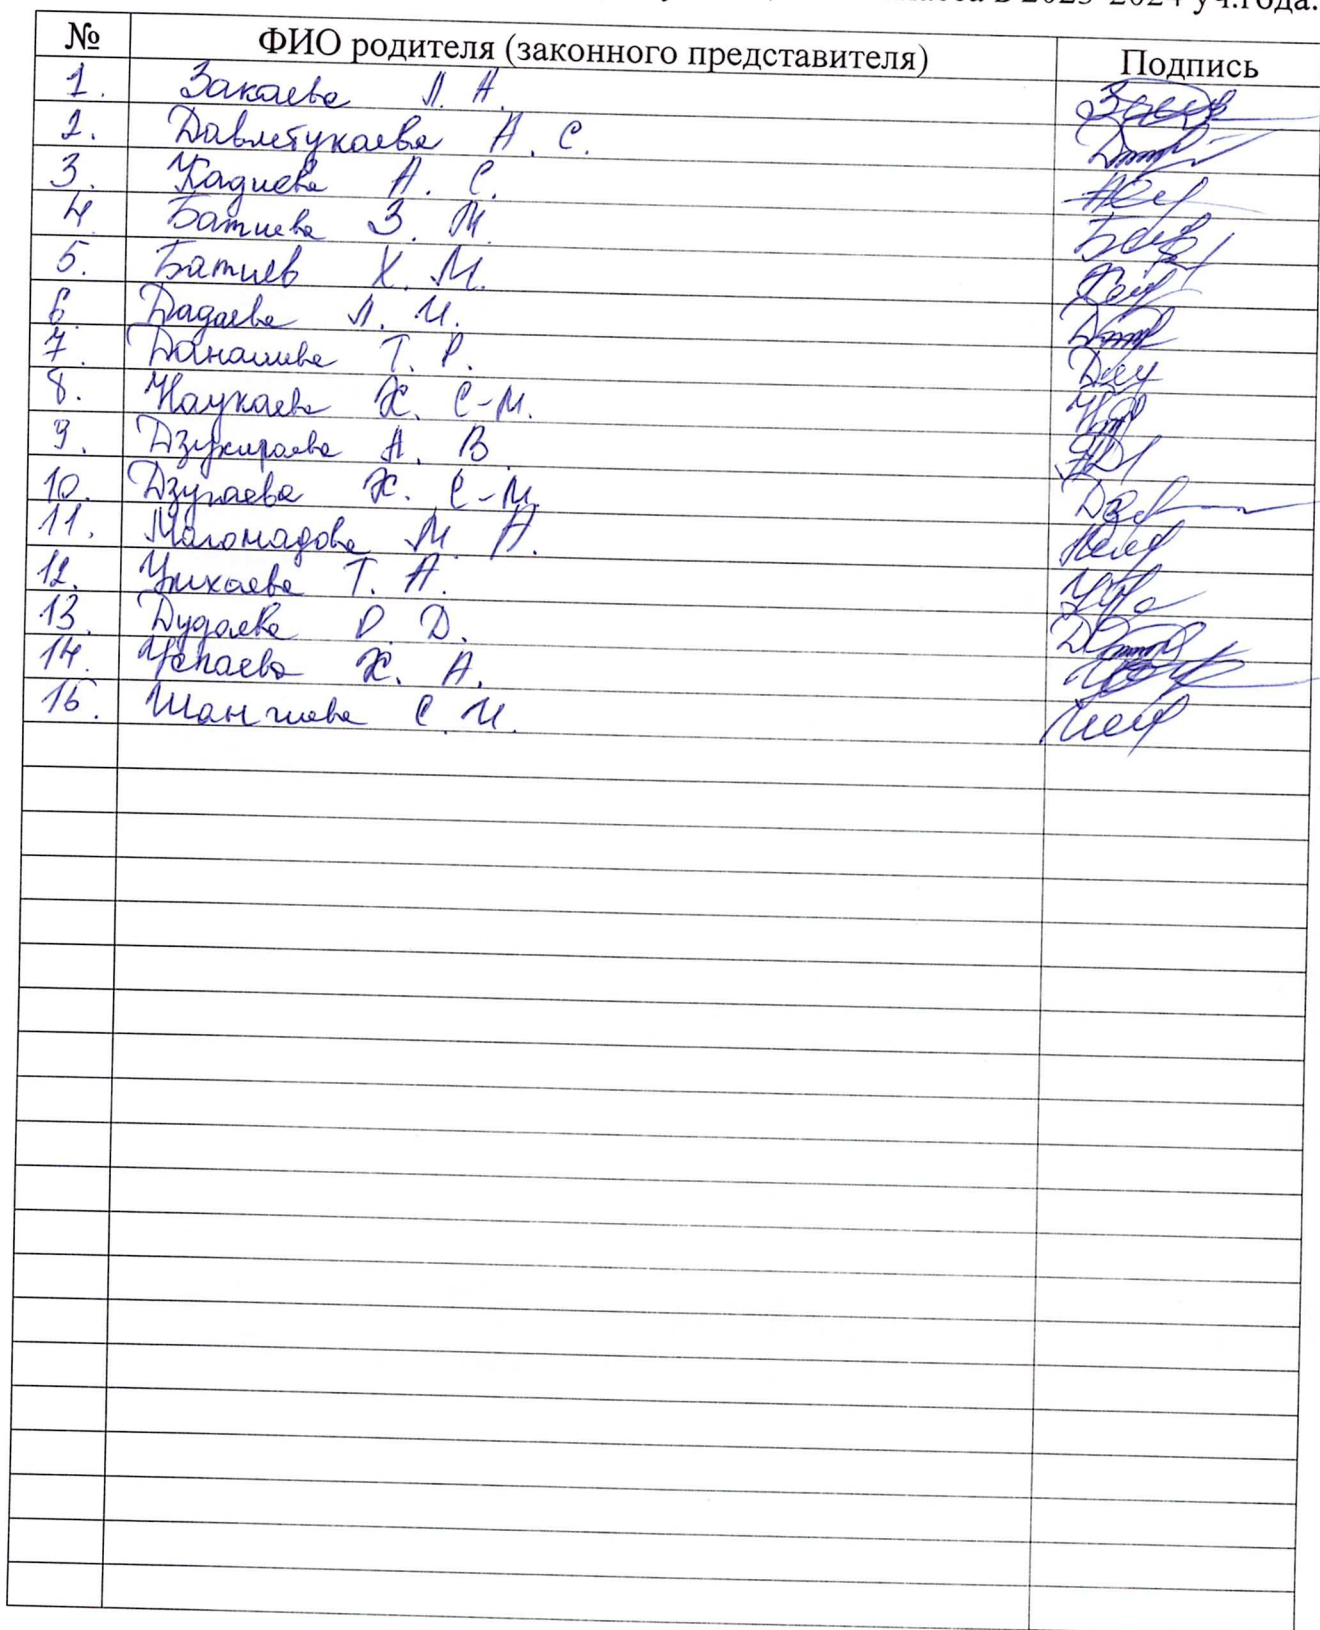 в 2023-2024 уч.года.
№ ФИО родителя (законного представителя) Подпись
1. Закаева Л. А.
2. Давлетукаева А. С.
3. Кадиева А. С.
4. Батиева З. М.
5. Батиев Х. М.
6 Дадаева Л. И.
7. Данашева Т. Р.
8. Наукаева Х. С-М.
9. Дзухираева А. В
10. Дзугаева Х. С-М.
11. Магомадова М. А.
12. Умхаева Т. А.
13. Дудаева Р. Д.
14. Успаева Х. А.
15. Шангиева С. И.